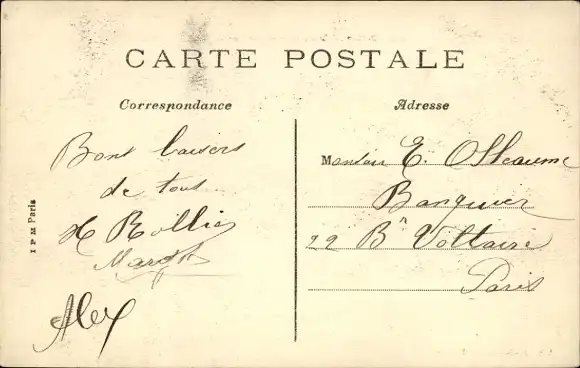 CARTE POSTALE
Correspondance
Adresse
Bons baisers
de tous
H Rollie
Margot
Alex
Monsieur E. Olleaume
Banquier
22 Bd Voltaire
Paris
I P M Paris